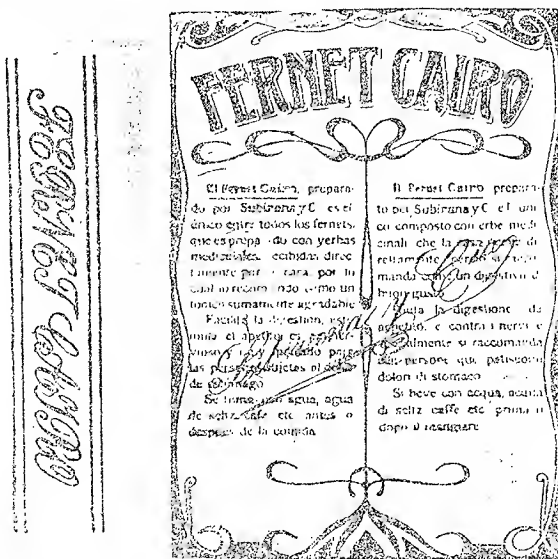 FERNET CAIRO
FERNET CAIRO
El Fernet Cairo, prepara-
do por Subirana y C es el
único entre todos los fernets,
que es prepa do con yerbas
medicinales, ecibidas direc
tamente por casa, por lo
cual lo recom ndo como un
tonico sumamente agradable
Facilita la digestion, esti-
mula el apetito es
y muy
las personas sujetos al dolor
de estomago
Se toma con agua, agua
de seltz cafe etc antes o
despues de la comida
Il Fernet Cairo prepara-
to por Subirana y C e l uni
co composto con erbe medi
cinali che la casa riceve di
rettamente percio si racco
manda come un digestivo di
buon gusto
la digestione da
appetito, e contra i nervi e
si raccomanda
persone que patiscono
dolori di stomaco
Si beve con acqua, acqua
di seltz caffe etc prima o
dopo il mangiare